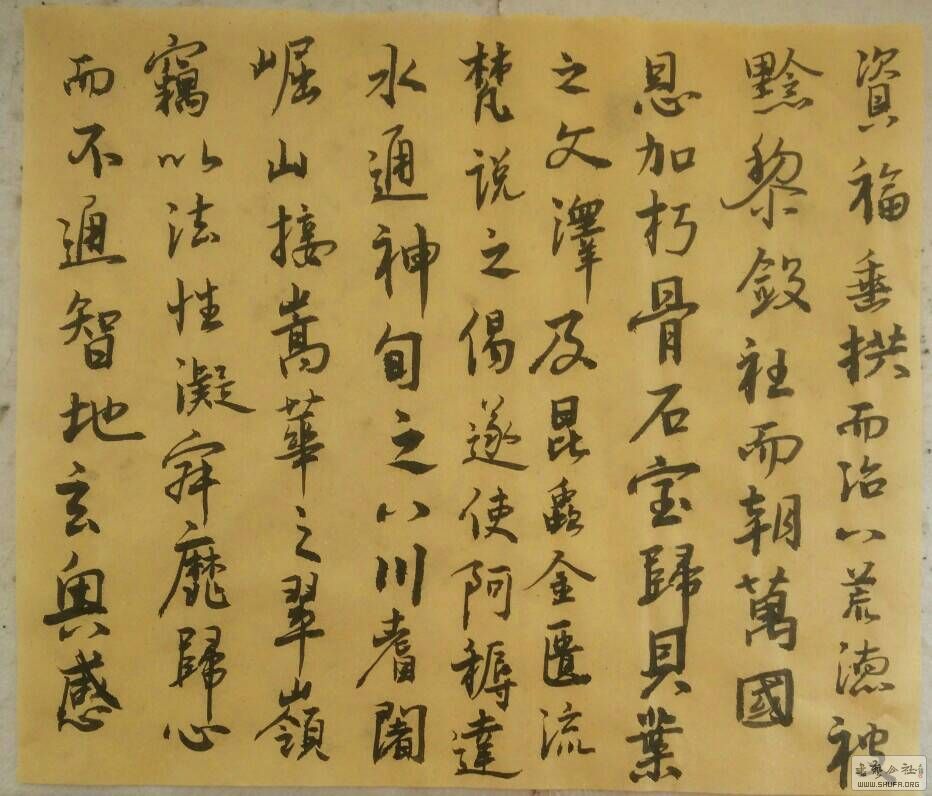 資福垂拱而治八荒德被
黔黎斂衽而朝萬國
恩加朽骨石室歸貝葉
之文澤及昆蟲金匱流
梵說之偈遂使阿耨達
水通神甸之八川耆闍
崛山接嵩華之翠嶺
竊以法性凝寂靡歸心
而不通智地玄奧感
WWW.SHUFA.ORG